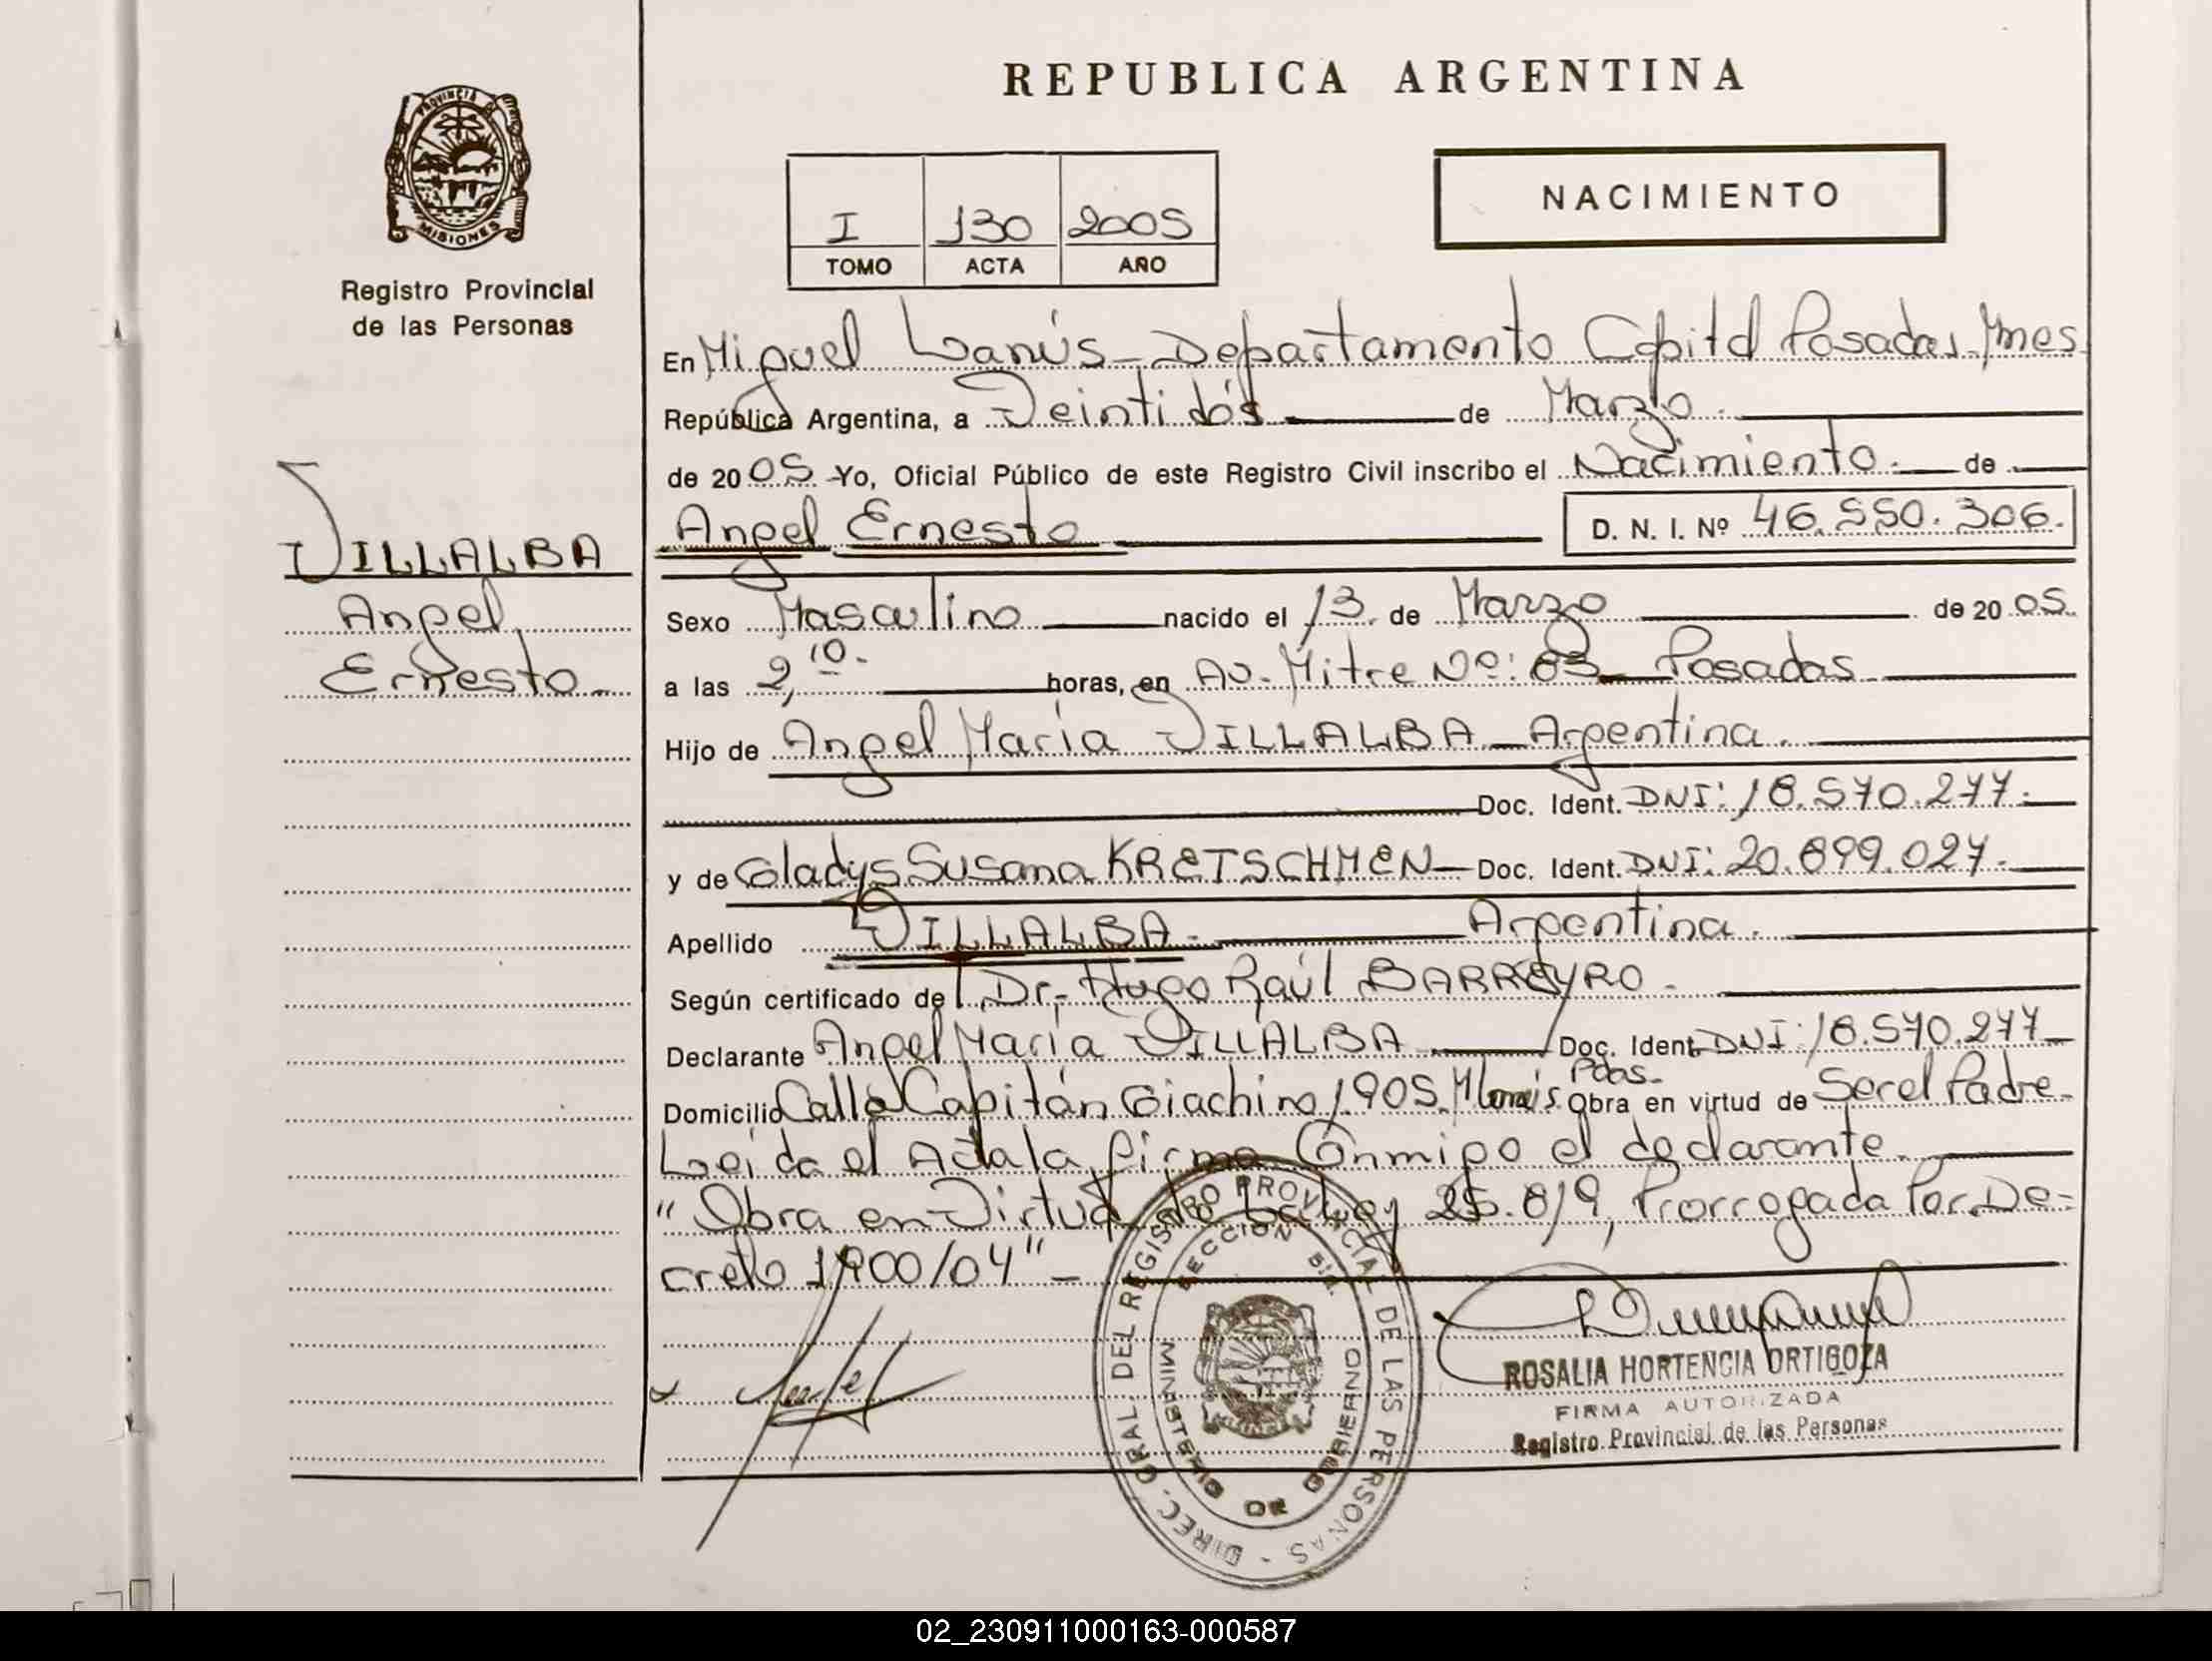 PROVINCIA DE
MISIONES
Registro Provincial
de las Personas
VILLALBA
Angel
Ernesto
REPUBLICA ARGENTINA
I 130 2005
TOMO ACTA AÑO
NACIMIENTO
En Miguel Lanús - Departamento Capital Posadas - Mnes
República Argentina, a Veintidós de Marzo.
de 2005 Yo, Oficial Público de este Registro Civil inscribo el Nacimiento. de
Angel Ernesto D. N. I. Nº 46.550.306.
Sexo Masculino nacido el 13. de Marzo de 2005.
a las 2,10. horas, en Av. Mitre Nº: 83 Posadas
Hijo de Angel María VILLALBA - Argentina.
Doc. Ident. DNI: 18.570.277.
y de Gladys Susana KRETSCHMEN - Doc. Ident. DNI: 20.899.027.
Apellido VILLALBA. Argentina.
Según certificado del Dr. Hugo Raúl BARREYRO.
Declarante Angel María VILLALBA Doc. Ident. DNI: 18.570.277
Domicilio Calle Capitán Giachino 1905. Pdas. Obra en virtud de Ser el Padre.
Leída el Acta la firma Conmigo el declarante.
"Obra en Virtud de La Ley 25.819, Prorrogada Por De=
creto 1900/04" -
DIREC. GRAL. DEL REGISTRO PROVINCIAL DE LAS PERSONAS
SECCION
MINISTERIO DE GOBIERNO
ROSALIA HORTENCIA ORTIGOZA
FIRMA AUTORIZADA
Registro Provincial de las Personas
02_230911000163-000587